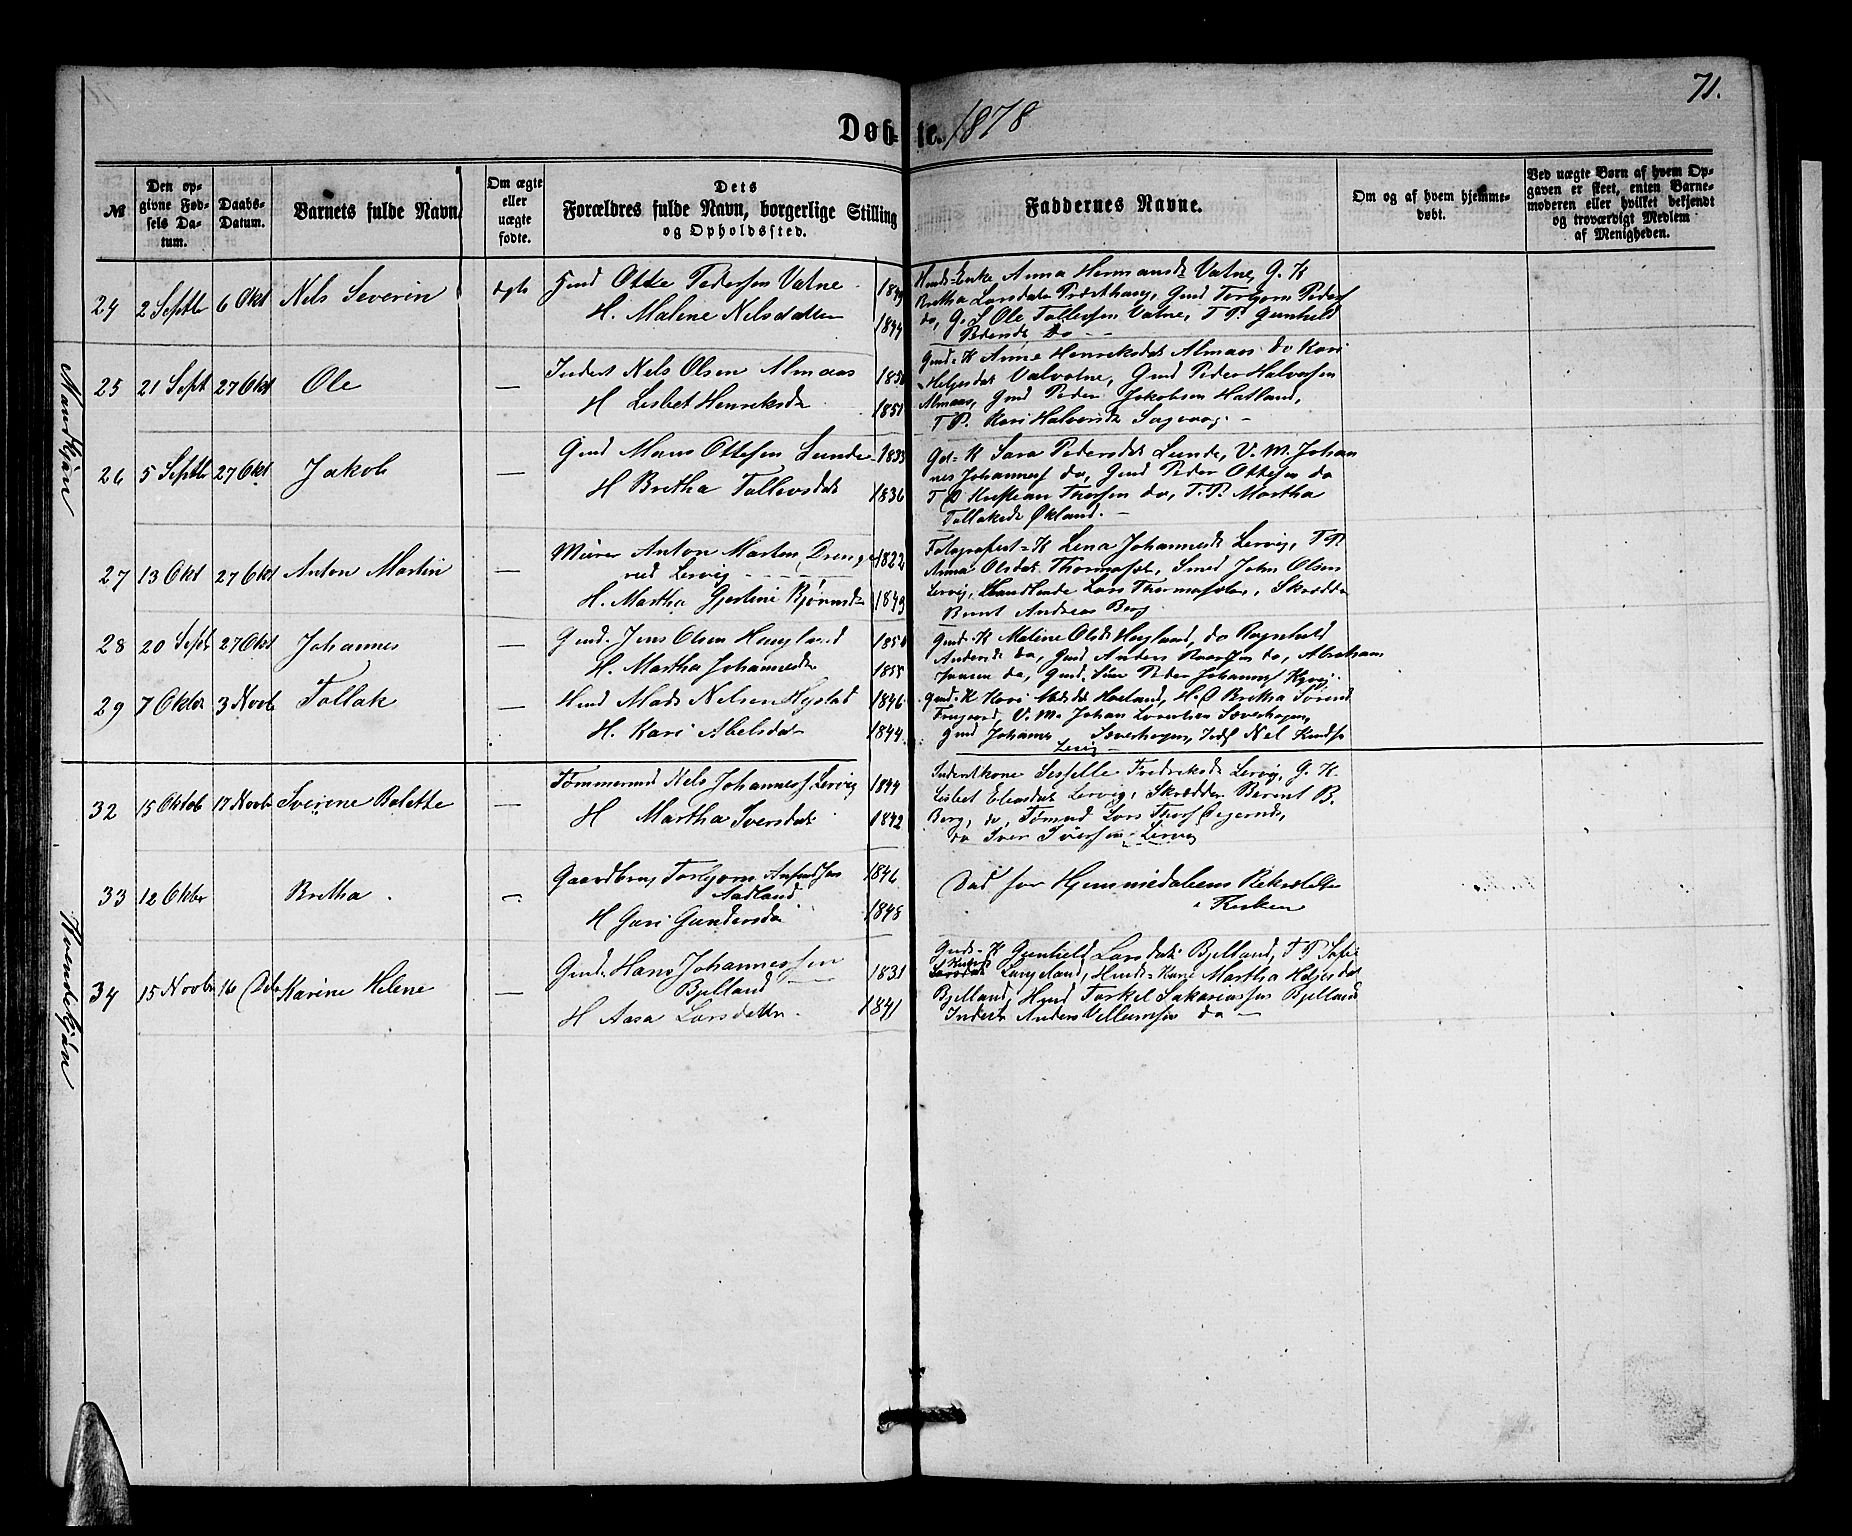 71.
Døbte. 1878
№
Den opgivne Fødsels Datum.
Daabs-Datum.
Barnets fulde Navn.
Om ægte eller uægte fødte.
Dets Forældres fulde Navn, borgerlige Stilling og Opholdssted.
Faddernes Navne.
Om og af hvem hjemmedøbt.
Ved uægte Børn af hvem Opgaven er skeet, enten Barnemoderen eller hvilket bekjendt og troværdigt Medlem af Menigheden.
Mandkjøn
24 2 Septb 6 Okt Nels Severin ægte Gmd Otte Pedersen Vatne
H. Malene Nelsdatter 1844
Enke Anna Hermansdt Vatne, G. K
Bretha Larsdatter Præsthaug, Gmd Torbjørn Peders
do, G. S Ole Tollevsen Vatne, T P Gunhild
Pedersdt do
25 21 Sept 27 Okt Ole — Inderst Nels Olsen Almaas 1850
H Lisbet Henriksdt 1851
Gmd-K Anne Henriksdat Almaas do Kari
Helgesdat Valvatne, Gmd Peder Halvorsen
Almaas, Gmd Peder Jakobsen Hatland,
T P. Kari Halvorsdt Sagvaag
26 5 Septb 27 Okt Jakob — Gmd Mons Ottesen Lunde 1833
H Bretha Tollevsdat 1836
Gd-K Sara Pedersdat Lunde, U. M. Johan
nes Johannes do, Gmd Peder Ottesen do
T P Kristian Thorsen do, T. P. Martha
Tollaksdt Økland.
27 13 Okt 27 Okt Anton Martin — Murer Anton Morten Dreng 1822
ved Lervig
H. Martha Gjertine Bjørnsdt 1849
Fotografist-K Lena Johannesdt Lervig, T P
Anna Olsdat Thormosæt, Smed John Olsen
Lervig, Handlende Lars Thormosæter, Skrædder
Bernt Andreas Berg
28 20 Septb 27 Okt Johannes — Gmd. Jens Olsen Haugland 1850
H. Martha Johannesdt 1855
Gmd-K Malene Olsdt Haugland, do Ragnhild
Andersdt do, Gmd Anders Roarsen do, Abraham
Jensen do, Gmd. Peder Johannes
29 7 Oktbr 3 Novb Tollak — Hmd Mads Nelsen Hystad 1846
H. Kari Abelsdat 1844
Gmd-K Kari Hovland, H. Bretha Sørensd
U. M. Johan Lorentsen Sæverhagen,
Gmd Johannes Sæverhagen, Nels Knuds
Lervig
Kvindekjøn
32 15 Oktob 17 Novb Sverine Bolette — Tømmermd Nels Johannes Lervig 1844
H Martha Iversdat 1842
Inderstkone Sesselle Fredriksdt Lervig, G. K.
Lisbet Eliasdat Lervig, Skrædder Bernt B.
Berg, do, Tømmd Lars Thors
do Iver Iversen Lervig
33 12 Oktbr Bretha — Gaardbrug Torbjørn Anfindsen 1846
Aadland
H Guri Gundersdt 1848
Død før Hjemmedaabens Bekræftelse
i Kirken
34 15 Novbr 16 Deb Karine Helene — Gmd. Hans Johannessen 1831
Bjelland
H Aasa Larsdatter 1841
Gmds-K Gunhild Larsdat Bjelland, T P Sofie
Larsdat Langeland, Hmds-Kone Martha Helgesdat
Bjelland, Hmd Torkel Sakariassen Bjelland
Inderst Anders Villumsen do